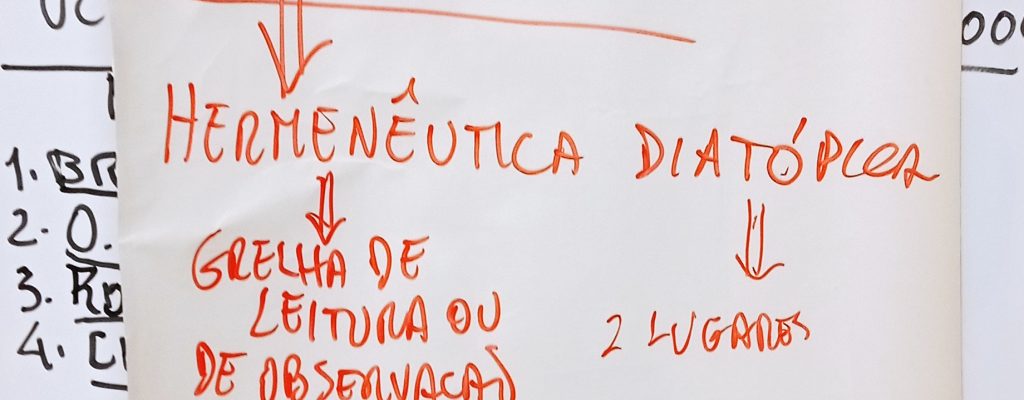 HERMENÊUTICA DIATÓPICA
GRELHA DE
LEITURA OU
DE OBSERVAÇÃO
2 LUGARES
1.
2. O.
3.
4.